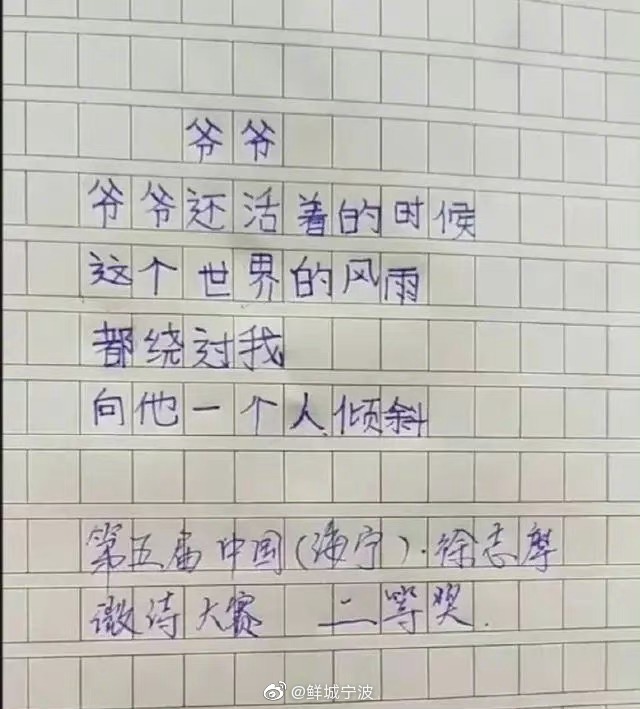 爷爷
爷爷还活着的时候
这个世界的风雨
都绕过我
向他一个人倾斜
第五届中国(海宁)·徐志摩
微诗大赛 二等奖.
@鲜城宁波